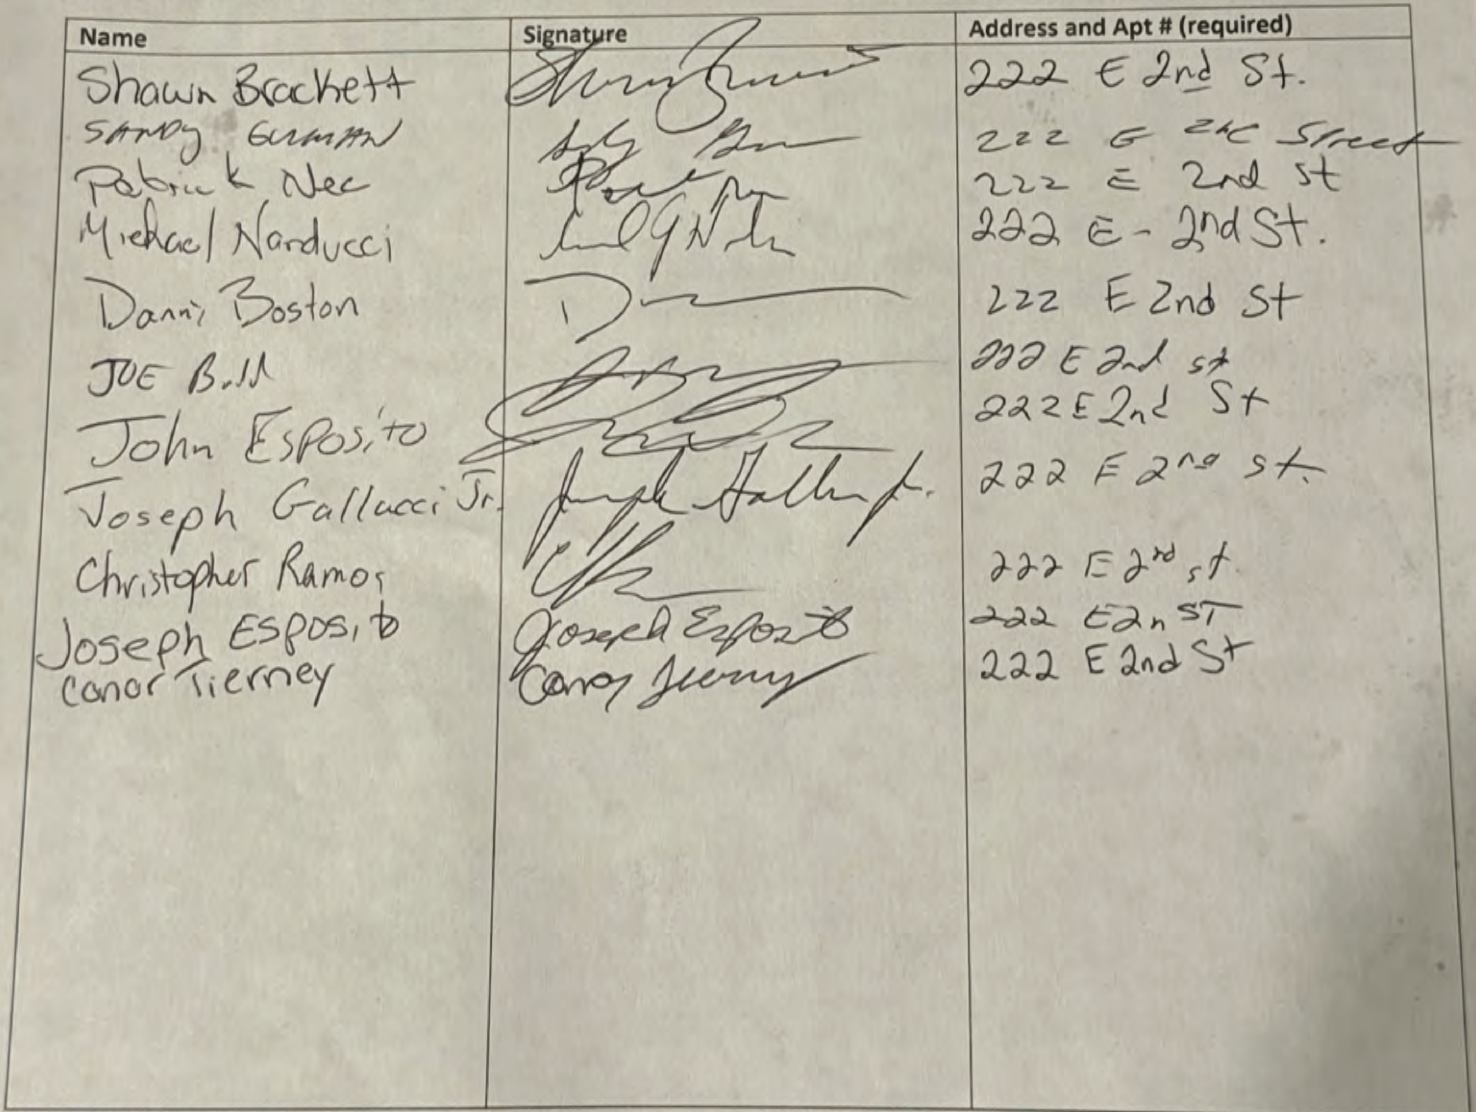 Name Signature Address and Apt # (required)
Shawn Brackett 222 E 2nd St.
SANDY GUZMAN 222 E 2nd Street
Patrick Nec 222 E 2nd St
Michael Narducci 222 E - 2nd St.
Danni Boston 222 E 2nd St
JOE 222 E 2nd st
John Esposito 222 E 2nd St
Joseph Gallucci Jr. Joseph Gallucci Jr. 222 E 2nd st.
Christopher Ramos 222 E 2nd st.
Joseph Esposito Joseph Esposito 222 E 2n ST
Conor Tierney Conor Tierney 222 E 2nd St